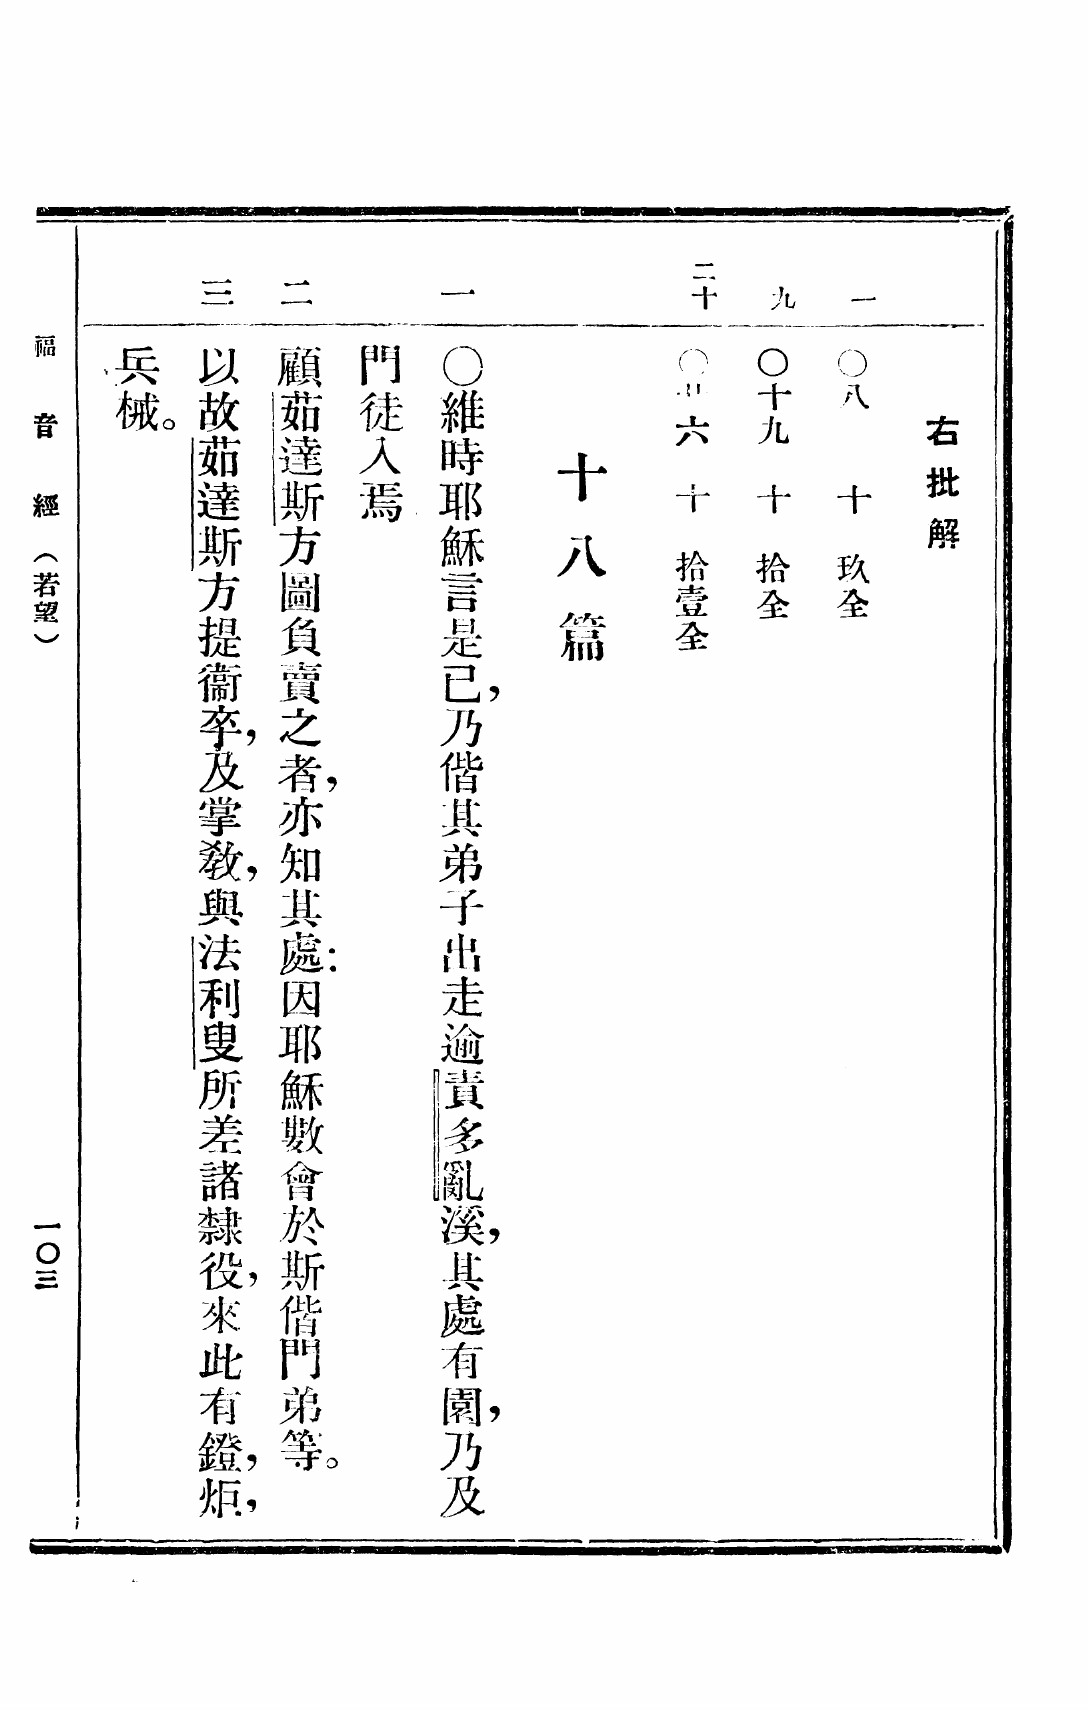 右批解
一 〇八 十 玖全
九 〇十九 十 拾全
二十 〇廿六 十 拾壹全
十八篇
一 〇維時耶穌言是已，乃偕其弟子出走逾責多亂溪，其處有園，乃及
門徒入焉
二 顧茹達斯方圖負賣之者，亦知其處：因耶穌數會於斯偕門弟等。
三 以故茹達斯方提衞卒，及掌敎，與法利叟所差諸隸役，來此有鐙，炬，
兵械。
福音經（若望） 一〇三